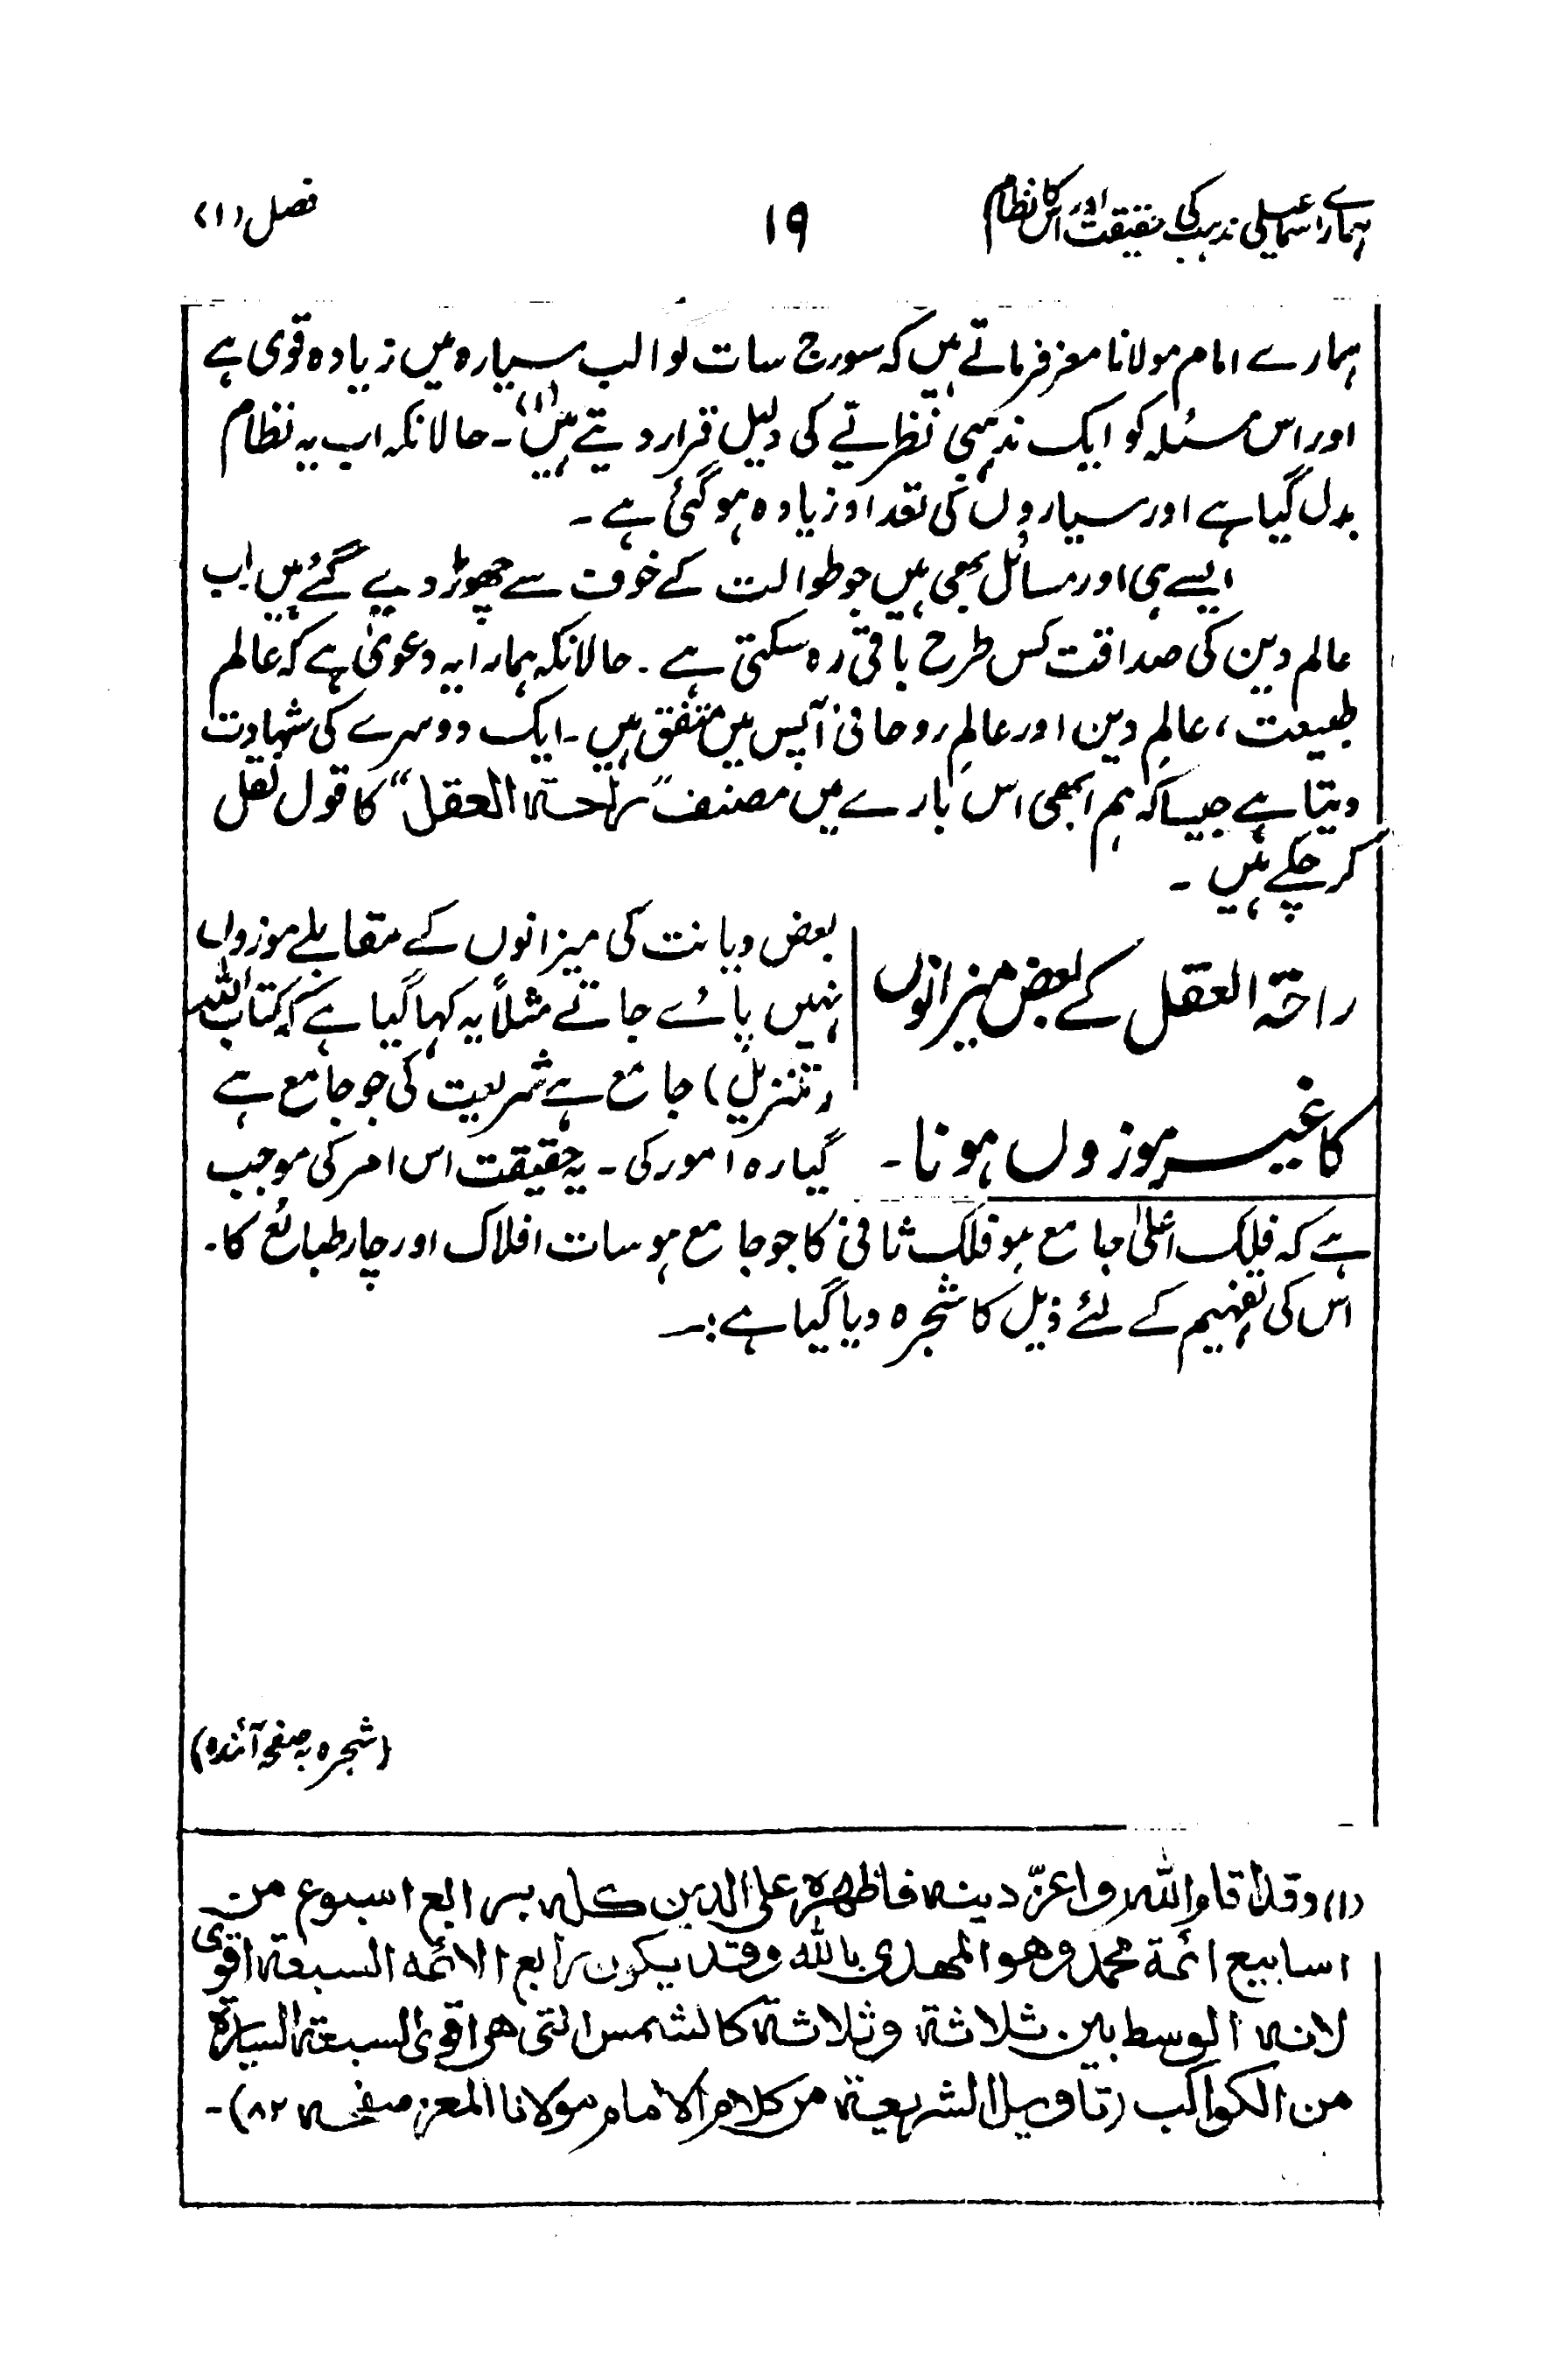 ہمارے اسماعیلی مذہب کی حقیقت اور اس کا نظام
۱۹
فصل (۱)
ہمارے امام مولانا معز فرماتے ہیں کہ سورج سات کواکب سیارہ میں زیادہ قوی ہے
اور اس مسئلہ کو ایک مذہبی نظریے کی دلیل قرار دیتے ہیں (۱) ۔ حالانکہ اب یہ نظام
بدل گیا ہے اور سیاروں کی تعداد زیادہ ہوگئی ہے ۔
ایسے ہی اور مسائل بھی ہیں جو طوالت کے خوف سے چھوڑ دیے گئے ہیں اب
عالم دین کی صداقت کس طرح باقی رہ سکتی ہے ۔ حالانکہ ہمارا یہ دعویٰ ہے کہ عالم
طبیعت، عالمِ دین اور عالمِ روحانی آپس میں متفق ہیں ۔ ایک دوسرے کی شہادت
دیتا ہے جیسا کہ ہم ابھی اس بارے میں مصنف “راحۃ العقل” کا قول نقل
کر چکے ہیں ۔
راحۃ العقل کے بعض میزانوں
کا غیر موزوں ہونا ۔
بعض دیانت کی میزانوں کے مقابلے موزوں
نہیں پائے جاتے مثلاً یہ کہا گیا ہے کہ کتاب اللہ
(تنزیل) جامع ہے شریعت کی جو جامع ہے
گیارہ امور کی ۔ یہ حقیقت اس امر کی موجب
ہے کہ فلک اعلیٰ جامع ہو فلک ثانی کا جو جامع ہو سات افلاک اور چار طبائع کا ۔
اس کی تفہیم کے لئے ذیل کا شجرہ دیا گیا ہے :۔
(شجرہ بہ صفحہ آئندہ)
(۱) وقد اقام اللہ و اعزّ دینہ فاظھرہ علی الدین کلہ برابع اسبوع من
اسابیع ائمة محمد وھو المھدی باللہ وقد یکون رابع الائمہ السبعة اقوی
لانہ الوسط بین ثلاثة وثلاثة کالشمس التی ھی اقوی السبعة السیارة
من الکواکب (تاویل الشریعة من کلام الامام مولانا المعز صفحہ ۸۲) ۔